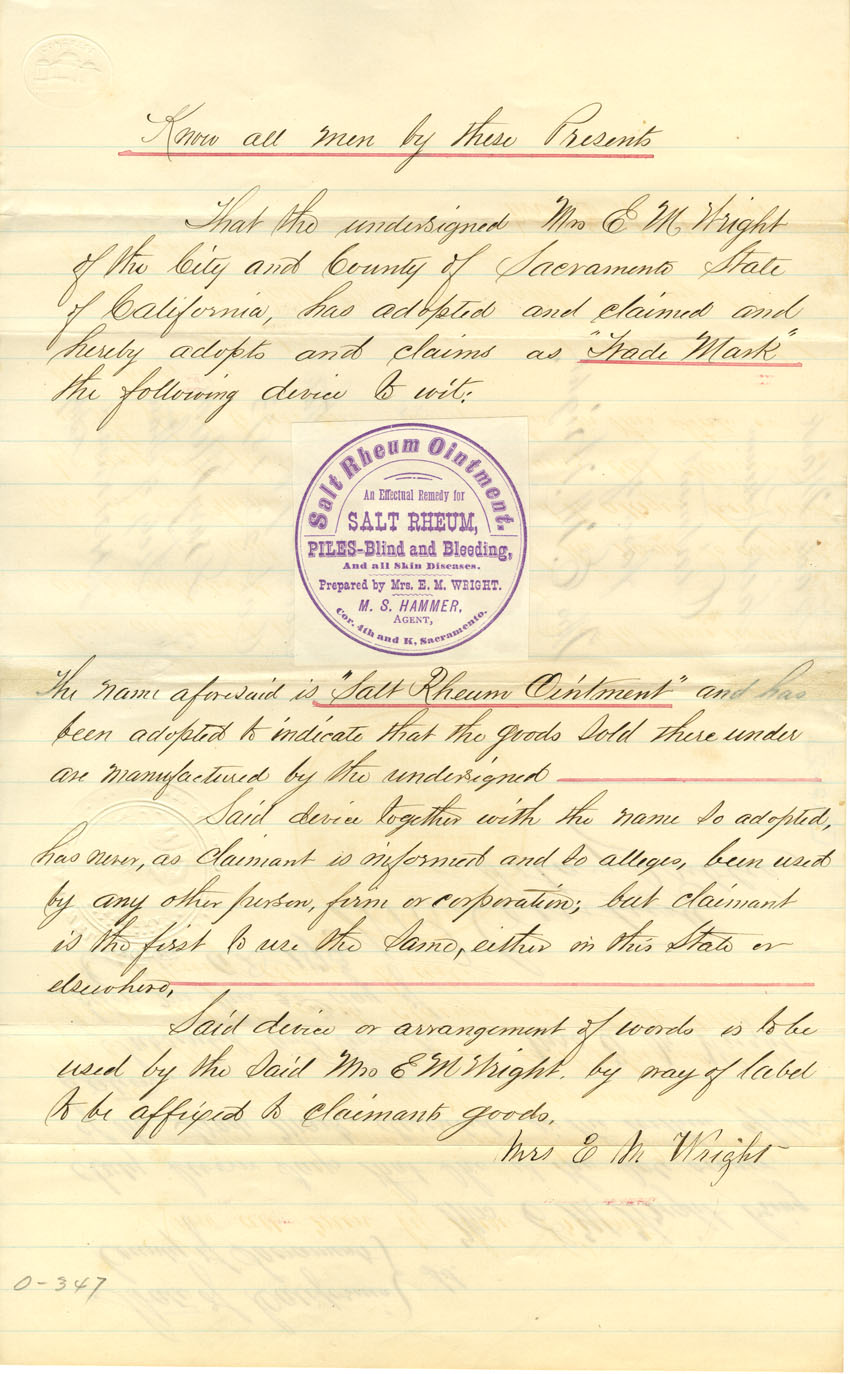 Know all men by these Presents
That the undersigned Mrs E M Wright
of the City and County of Sacramento State
of California, has adopted and claimed and
hereby adopts and claims as "Trade Mark"
the following device to wit:
Salt Rheum Ointment.
An Effectual Remedy for
SALT RHEUM,
PILES-Blind and Bleeding,
And all Skin Diseases.
Prepared by Mrs. E. M. WRIGHT.
M. S. HAMMER,
AGENT,
Cor. 4th and K, Sacramento.
The name aforesaid is "Salt Rheum Ointment" and has
been adopted to indicate that the goods sold there under
are manufactured by the undersigned
Said device together with the name so adopted,
has never, as claimant is informed and so alleges, been used
by any other person, firm or corporation; but claimant
is the first to use the same, either in this State or
elsewhere,
Said device or arrangement of words is to be
used by the said Mrs E M Wright. by way of label
to be affixed to claimants goods.
Mrs E M Wright
0-347